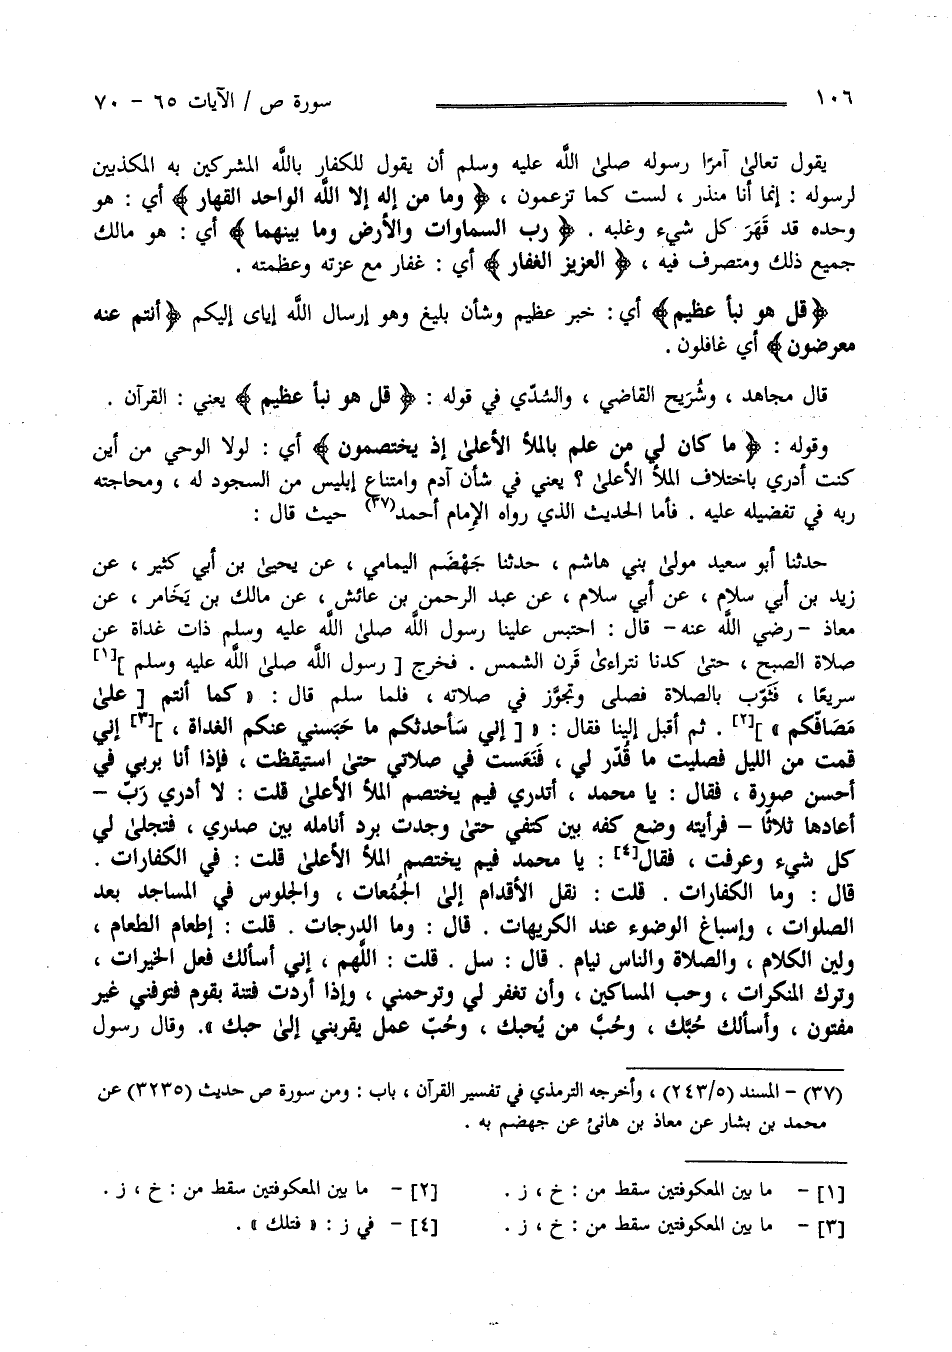 ١٠٦ سورة ص / الآيات ٦٥ - ٧٠
يقول تعالىٰ آمرًا رسوله صلىٰ اللَّه عليه وسلم أن يقول للكفار باللَّه المشركين به المكذبين
لرسوله : إنما أنا منذر ، لست كما تزعمون ، ﴿ وما من إله إلا اللَّه الواحد القهار ﴾ أي : هو
وحده قد قَهَرَ كل شيء وغلبه . ﴿ رب السماوات والأرض وما بينهما ﴾ أي : هو مالك
جميع ذلك ومتصرف فيه ، ﴿ العزيز الغفار ﴾ أي : غفار مع عزته وعظمته .
﴿قل هو نبأ عظيم﴾ أي : خبر عظيم وشأن بليغ وهو إرسال اللَّه إياى إليكم ﴿أنتم عنه
معرضون﴾ أي غافلون .
قال مجاهد ، وشُرَيح القاضي ، والسُدّي في قوله : ﴿ قل هو نبأ عظيم ﴾ يعني : القرآن .
وقوله : ﴿ ما كان لي من علم بالملأ الأعلىٰ إذ يختصمون ﴾ أي : لولا الوحي من أين
كنت أدري باختلاف الملأ الأعلىٰ ؟ يعني في شأن آدم وامتناع إبليس من السجود له ، ومحاجته
ربه في تفضيله عليه . فأما الحديث الذي رواه الإمام أحمد(٣٧) حيث قال :
حدثنا أبو سعيد مولىٰ بني هاشم ، حدثنا جَهْضَم اليمامي ، عن يحيىٰ بن أبي كثير ، عن
زيد بن أبي سلام ، عن أبي سلام ، عن عبد الرحمن بن عائش ، عن مالك بن يَخَامر ، عن
معاذ -رضي اللَّه عنه- قال : احتبس علينا رسول اللَّه صلىٰ اللَّه عليه وسلم ذات غداة عن
صلاة الصبح ، حتىٰ كدنا نتراءىٰ قَرن الشمس . فخرج [ رسول اللَّه صلىٰ اللَّه عليه وسلم ][١]
سريعًا ، فَثَوّب بالصلاة فصلى وتجوَّز في صلاته ، فلما سلم قال : « كما أنتم [ علىٰ
مَصَافّكم » ][٢] . ثم أقبل إلينا فقال : « [ إني سَأحدثكم ما حَبَسني عنكم الغداة ، ][٣] إني
قمت من الليل فصليت ما قُدّر لي ، فَنَعَست في صلاتي حتىٰ استيقظت ، فإذا أنا بربي في
أحسن صورة ، فقال : يا محمد ، أتدري فيم يختصم الملأ الأعلىٰ قلت : لا أدري رَبّ –
أعادها ثلاثًا – فرأيته وضع كفه بين كتفي حتىٰ وجدت برد أنامله بين صدري ، فتجلىٰ لي
كل شيء وعرفت ، فقال[٤] : يا محمد فيم يختصم الملأ الأعلىٰ قلت : في الكفارات .
قال : وما الكفارات . قلت : نقل الأقدام إلىٰ الجُمُعات ، والجلوس في المساجد بعد
الصلوات ، وإسباغ الوضوء عند الكريهات . قال : وما الدرجات . قلت : إطعام الطعام ،
ولين الكلام ، والصلاة والناس نيام . قال : سل . قلت : اللَّهم ، إني أسألك فعل الخيرات ،
وترك المنكرات ، وحب المساكين ، وأن تغفر لي وترحمني ، وإذا أردت فتنة بقوم فتوفني غير
مفتون ، وأسألك حُبَّك ، وحُبَّ من يُحبك ، وحُبّ عمل يقربني إلىٰ حبك ». وقال رسول
(٣٧) - المسند (٢٤٣/٥) ، وأخرجه الترمذي في تفسير القرآن ، باب : ومن سورة ص حديث (٣٢٣٥) عن
محمد بن بشار عن معاذ بن هانئ عن جهضم به .
[١] - ما بين المعكوفتين سقط من : خ ، ز . [٢] - ما بين المعكوفتين سقط من : خ ، ز .
[٣] - ما بين المعكوفتين سقط من : خ ، ز . [٤] - في ز : « فتلك » .